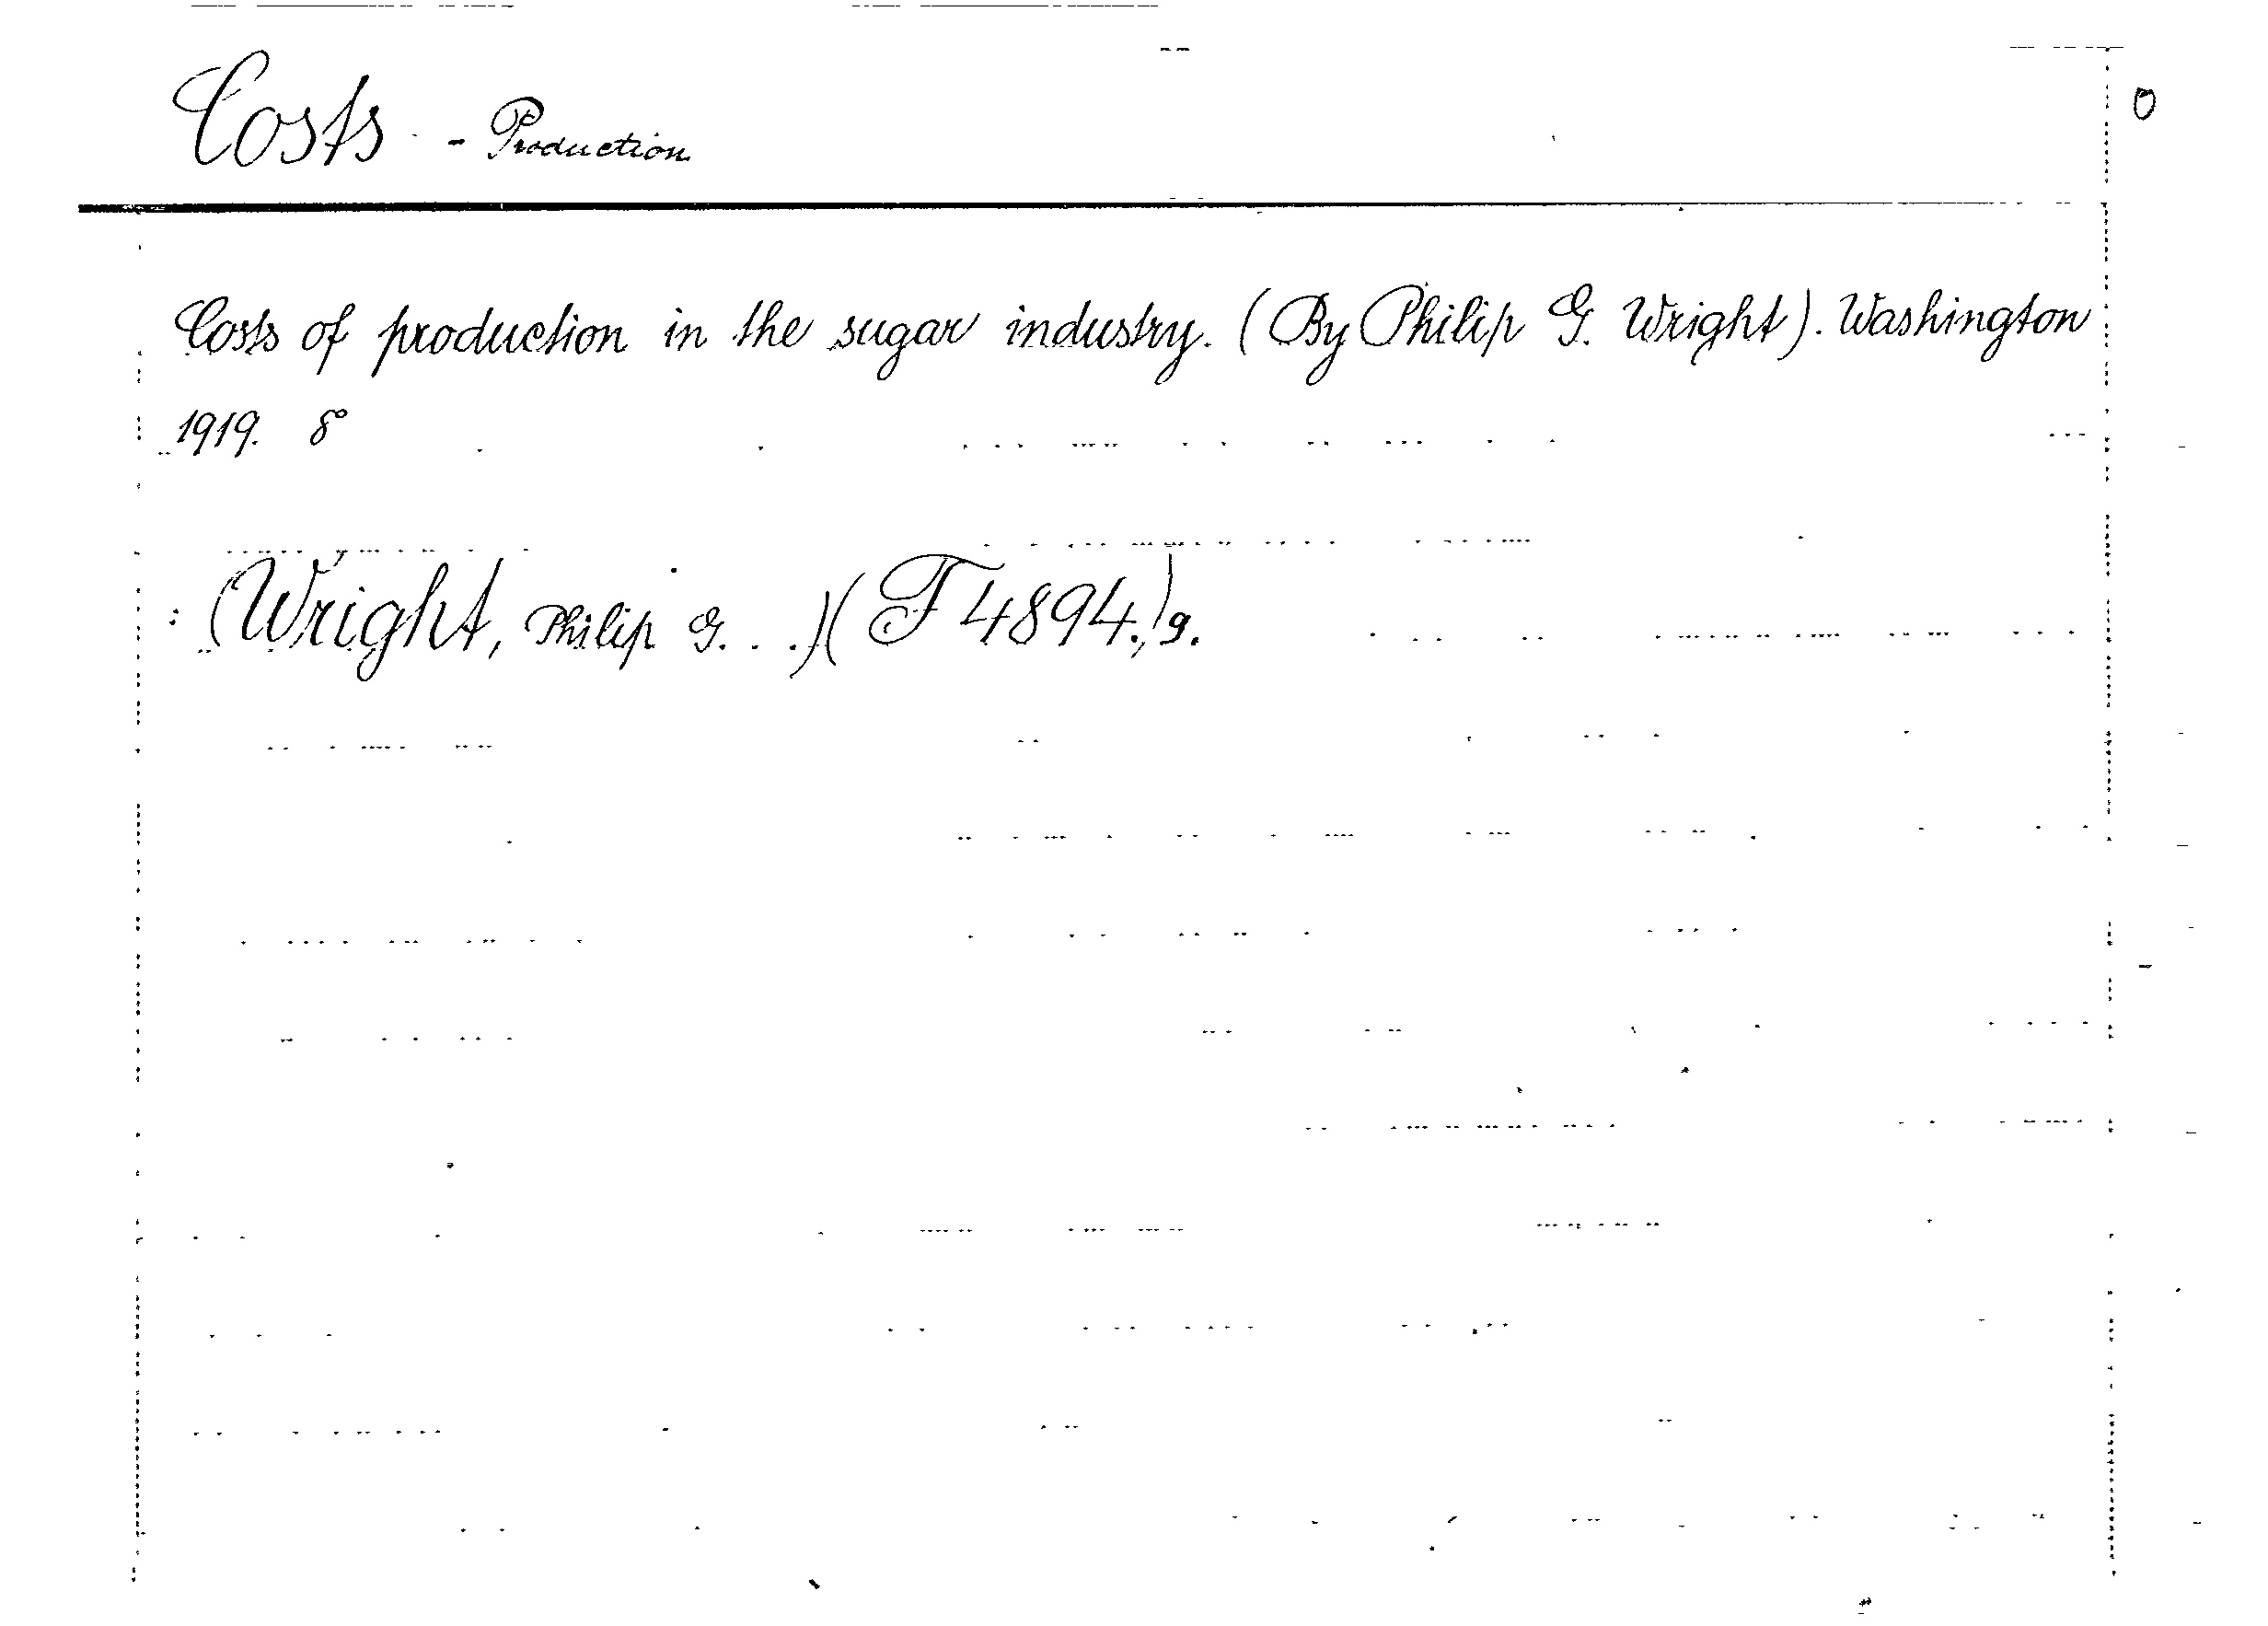 Costs - Production
0
Costs of production in the sugar industry. (By Philip G. Wright). Washington
1919. 8°
(Wright, Philip G...)(F 4894.)g.